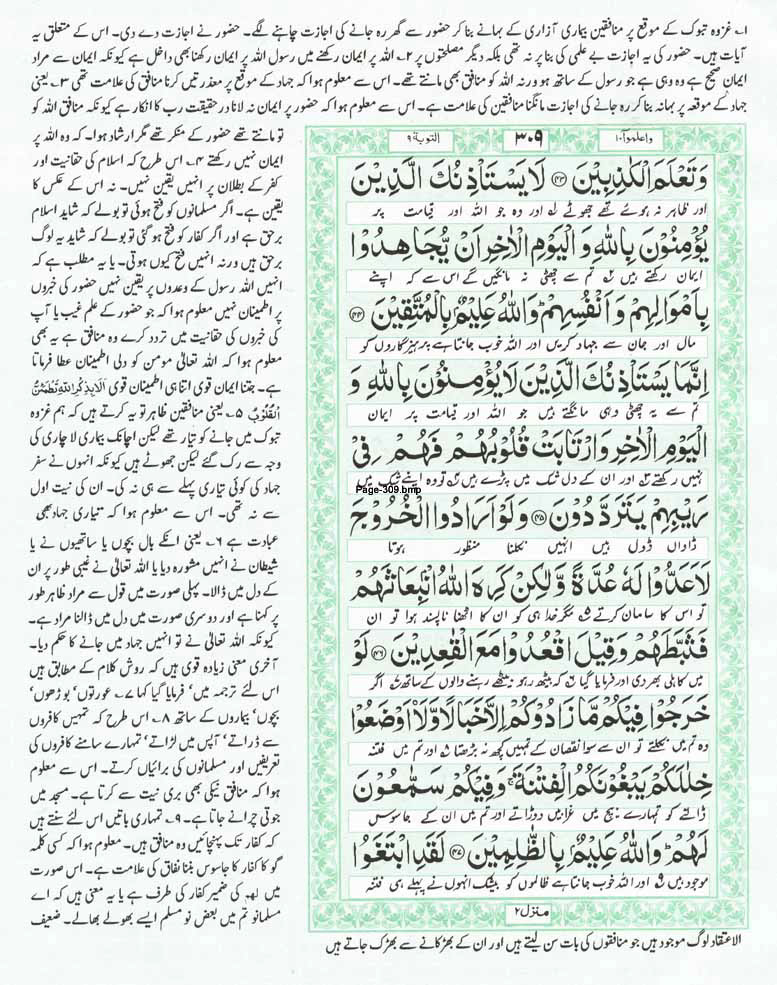 ۱۔ غزوہ تبوک کے موقع پر منافقین بیماری آزاری کے بہانے بنا کر حضور سے گھر رہ جانے کی اجازت چاہنے لگے۔ حضور نے اجازت دے دی۔ اس کے متعلق یہ
آیات ہیں۔ حضور کی یہ اجازت بے علمی کی بنا پر نہ تھی بلکہ دیگر مصلحتوں پر ۲۔ اللہ پر ایمان رکھنے میں رسول اللہ پر ایمان رکھنا بھی داخل ہے کیونکہ ایمان سے مراد
ایمان صحیح ہے وہ وہی ہے جو رسول کے ساتھ ہو ورنہ اللہ کو منافق بھی مانتے تھے۔ اس سے معلوم ہوا کہ جہاد کے موقع پر معذرتیں کرنا منافق کی علامت تھی ۳۔ یعنی
جہاد کے موقعہ پر بہانہ بنا کر رہ جانے کی اجازت مانگنا منافقین کی علامت ہے۔ اس سے معلوم ہوا کہ حضور پر ایمان نہ لانا در حقیقت رب کا انکار ہے کیونکہ منافق اللہ کو
واعلموآ۱۰
۳۰۹
التوبة ۹
وَتَعْلَمَ الْكٰذِبِيْنَ ﴿۴۳﴾ لَا يَسْتَاْذِنُكَ الَّذِيْنَ
اور ظاہر نہ ہوئے تھے جھوٹے اور وہ جو اللہ اور قیامت پر
يُؤْمِنُوْنَ بِاللّٰهِ وَالْيَوْمِ الْاٰخِرِ اَنْ يُّجَاهِدُوْا
ایمان رکھتے ہیں تم سے چھٹی نہ مانگیں گے اس سے کہ اپنے
بِاَمْوَالِهِمْ وَاَنْفُسِهِمْ ؕ وَاللّٰهُ عَلِيْمٌۢ بِالْمُتَّقِيْنَ ﴿۴۴﴾
مال اور جان سے جہاد کریں اور اللہ خوب جانتا ہے پرہیزگاروں کو
اِنَّمَا يَسْتَاْذِنُكَ الَّذِيْنَ لَا يُؤْمِنُوْنَ بِاللّٰهِ وَ
تم سے یہ چھٹی وہی مانگتے ہیں جو اللہ اور قیامت پر ایمان
الْيَوْمِ الْاٰخِرِ وَارْتَابَتْ قُلُوْبُهُمْ فَهُمْ فِيْ
نہیں رکھتے اور ان کے دل شک میں پڑے ہیں تو وہ اپنے شک میں
Page-309.bmp
رَيْبِهِمْ يَتَرَدَّدُوْنَ ﴿۴۵﴾ وَلَوْ اَرَادُوا الْخُرُوْجَ
ڈانواں ڈول ہیں انہیں نکلنا منظور ہوتا
لَاَعَدُّوْا لَهٗ عُدَّةً وَّلٰكِنْ كَرِهَ اللّٰهُ انْۢبِعَاثَهُمْ
تو اس کا سامان کرتے مگر خدا ہی کو ان کا اٹھنا ناپسند ہوا تو ان
فَثَبَّطَهُمْ وَقِيْلَ اقْعُدُوْا مَعَ الْقٰعِدِيْنَ ﴿۴۶﴾ لَوْ
میں کاہلی بھر دی اور فرمایا گیا کہ بیٹھ رہو بیٹھے رہنے والوں کے ساتھ اگر
خَرَجُوْا فِيْكُمْ مَّا زَادُوْكُمْ اِلَّا خَبَالًا وَّلَا۟اَوْضَعُوْا
وہ تم میں نکلتے تو ان سے سوا نقصان کے تمہیں کچھ نہ بڑھتا اور تم میں فتنہ
خِلٰلَكُمْ يَبْغُوْنَكُمُ الْفِتْنَةَ ۚ وَفِيْكُمْ سَمّٰعُوْنَ
ڈالنے کو تمہارے بیچ میں غرابیں دوڑاتے اور تم میں ان کے جاسوس
لَهُمْ ؕ وَاللّٰهُ عَلِيْمٌۢ بِالظّٰلِمِيْنَ ﴿۴۷﴾ لَقَدِ ابْتَغَوُا
موجود ہیں اور اللہ خوب جانتا ہے ظالموں کو بیشک انہوں نے پہلے ہی فتنہ
منزل ۲
تو مانتے تھے حضور کے منکر تھے مگر ارشاد ہوا۔ کہ وہ اللہ پر
ایمان نہیں رکھتے ۴۔ اس طرح کہ اسلام کی حقانیت اور
کفر کے بطلان پر انہیں یقین نہیں۔ نہ اس کے عکس کا
یقین ہے۔ اگر مسلمانوں کو فتح ہوئی تو بولے کہ شاید اسلام
برحق ہے اور اگر کفار کو فتح ہو گئی تو بولے کہ شاید یہ لوگ
برحق ہیں ورنہ انہیں فتح کیوں ہوتی۔ یا یہ مطلب ہے کہ
انہیں اللہ رسول کے وعدوں پر یقین نہیں حضور کی خبروں
پر اطمینان نہیں معلوم ہوا کہ جو حضور کے علم غیب یا آپ
کی خبروں کی حقانیت میں تردد کرے وہ منافق ہے یہ بھی
معلوم ہوا کہ اللہ تعالیٰ مومن کو دلی اطمینان عطا فرماتا
ہے۔ جتنا ایمان قوی اتنا ہی اطمینان قوی اَلَا بِذِكْرِ اللّٰهِ تَطْمَئِنُّ
الْقُلُوْبُ ۵۔ یعنی منافقین ظاہر تو یہ کرتے ہیں کہ ہم غزوہ
تبوک میں جانے کو تیار تھے لیکن اچانک بیماری لاچاری کی
وجہ سے رک گئے لیکن جھوٹے ہیں کیونکہ انہوں نے سفر
جہاد کی کوئی تیاری پہلے سے ہی نہ کی۔ ان کی نیت اول
سے نہ تھی۔ اس سے معلوم ہوا کہ تیاری جہاد بھی
عبادت ہے ۶۔ یعنی انکے بال بچوں یا ساتھیوں نے یا
شیطان نے انہیں مشورہ دیا یا اللہ تعالیٰ نے غیبی طور پر ان
کے دل میں ڈالا۔ پہلی صورت میں قول سے مراد ظاہر طور
پر کہنا ہے اور دوسری صورت میں دل میں ڈالنا مراد ہے۔
کیونکہ اللہ تعالیٰ نے تو انہیں جہاد میں جانے کا حکم دیا۔
آخری معنی زیادہ قوی ہیں کہ روش کلام کے مطابق ہیں
اس لئے ترجمہ میں، فرمایا گیا کہا ۷۔ عورتوں، بوڑھوں،
بچوں، بیماروں کے ساتھ ۸۔ اس طرح کہ تمہیں کافروں
سے ڈراتے، آپس میں لڑاتے، تمہارے سامنے کافروں کی
تعریفیں اور مسلمانوں کی برائیاں کرتے۔ اس سے معلوم
ہوا کہ منافق نیکی بھی بری نیت سے کرتا ہے۔ مسجد میں
جوتی چرانے جاتا ہے۔ ۹۔ تمہاری باتیں اس لئے سنتے ہیں
کہ کفار تک پہنچائیں وہ منافق ہیں۔ معلوم ہوا کہ کسی کلمہ
گو کا کفار کا جاسوس بننا نفاق کی علامت ہے۔ اس صورت
میں لهم کی ضمیر کفار کی طرف ہے یا یہ معنی ہیں کہ اے
مسلمانو تم میں بعض نو مسلم ایسے بھولے بھالے۔ ضعیف
الاعتقاد لوگ موجود ہیں جو منافقوں کی بات سن لیتے ہیں اور ان کے بھڑکانے سے بھڑک جاتے ہیں